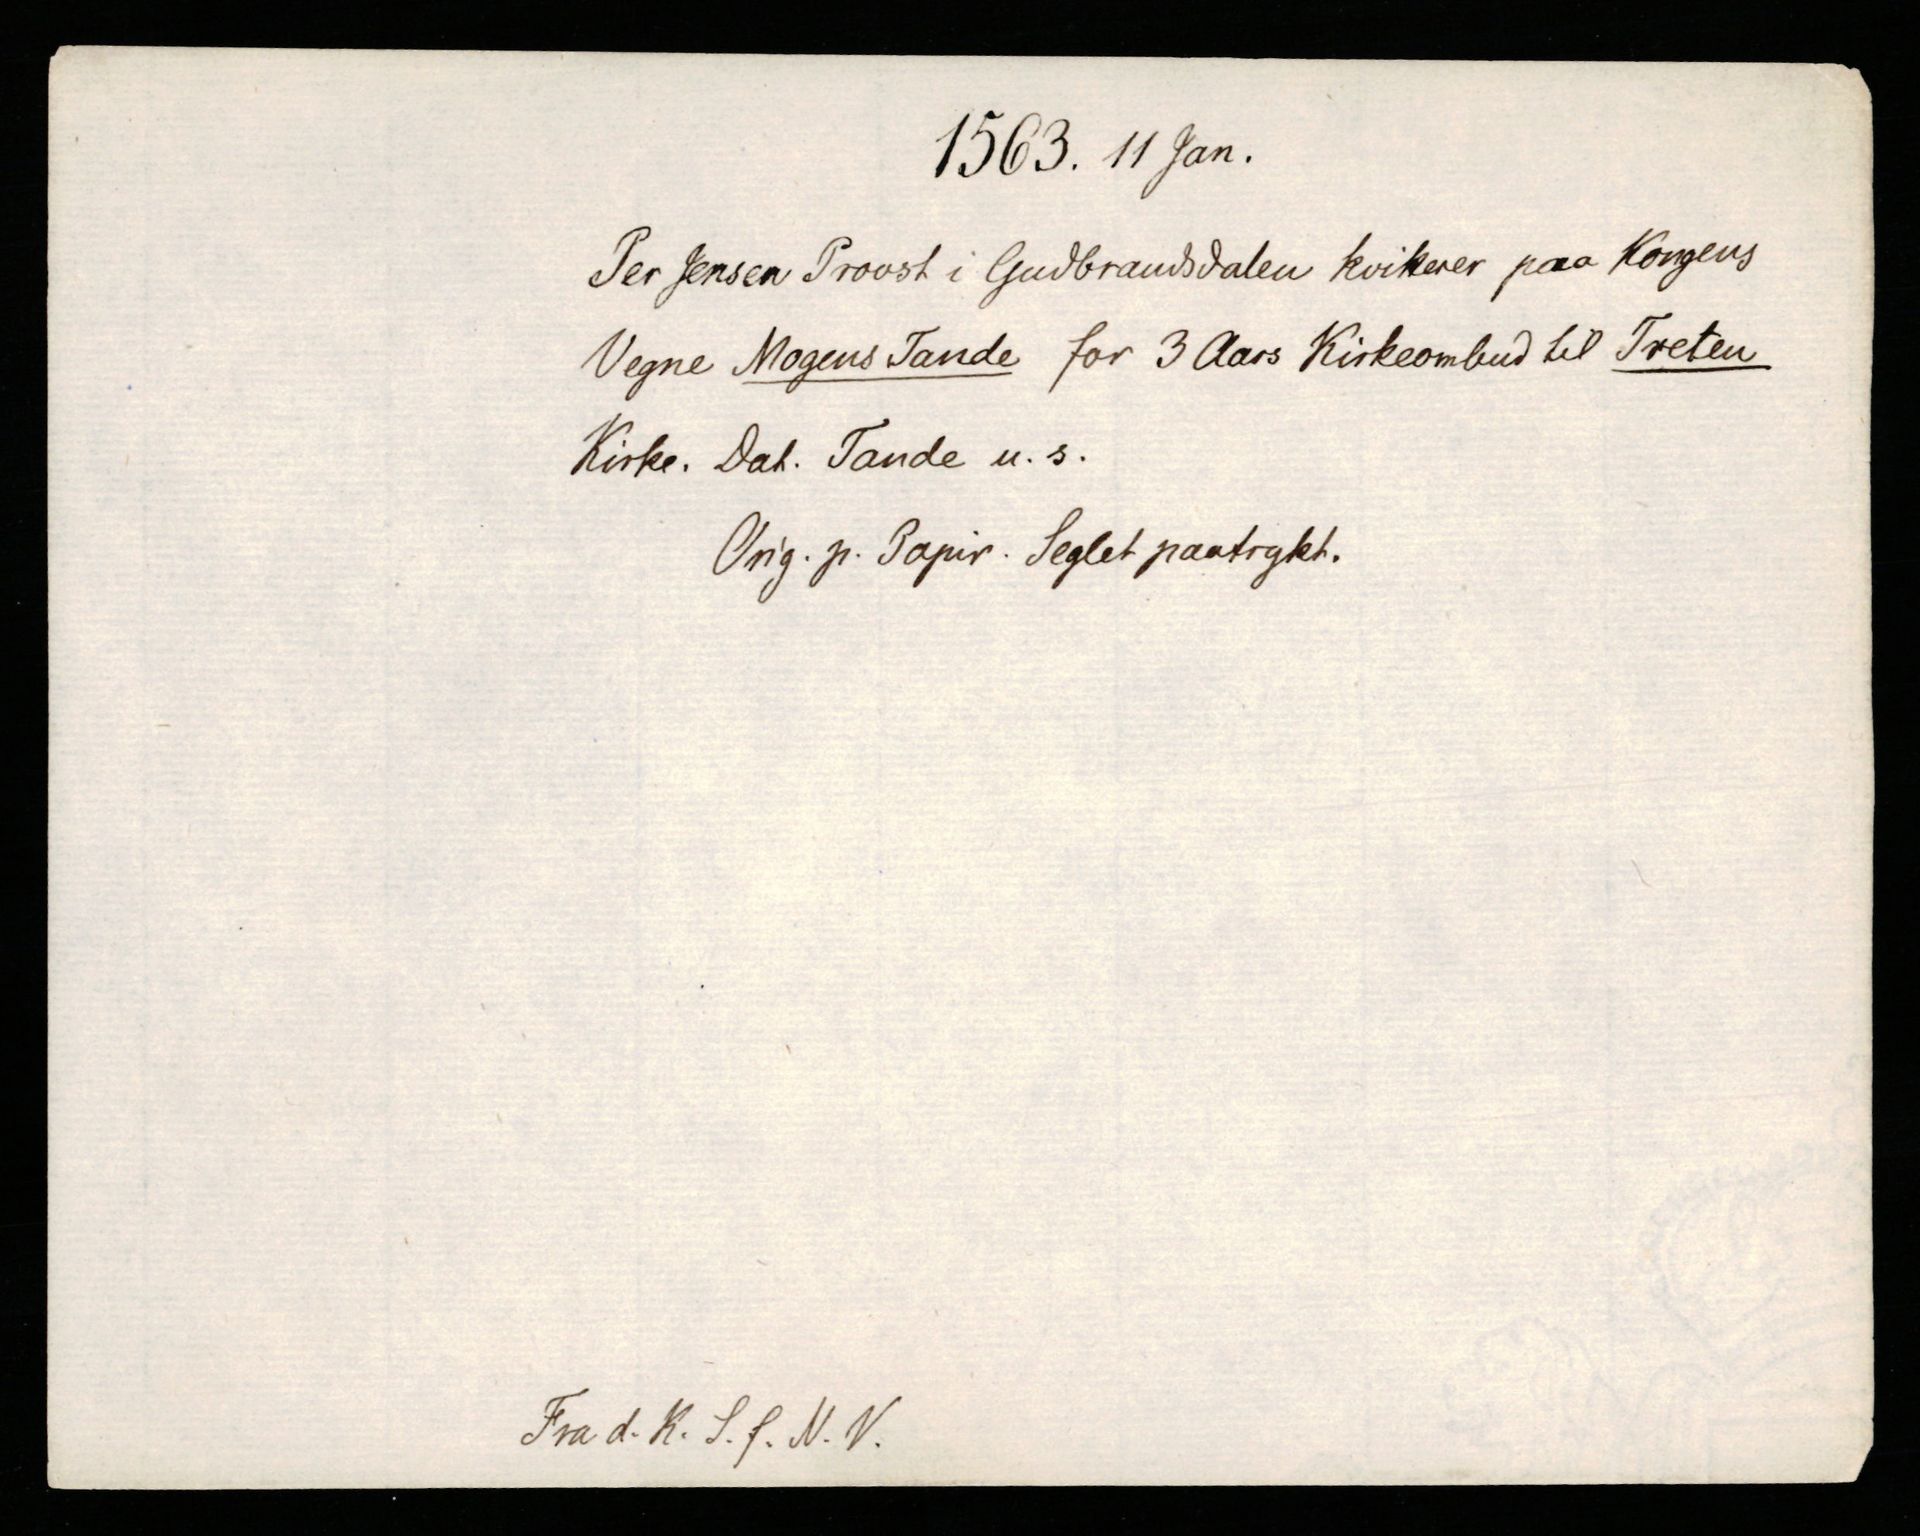 1563. 11 Jan.
Per Jensen Provst i Gudbrandsdalen kviterer paa Kongens
Vegne Mogens Tande for 3 Aars Kirkeombud til Treten
Kirke. Dat. Tande u. s.
Orig. p. Papir. Seglet paatrykt.
Fra d. K. S. f. N. V.